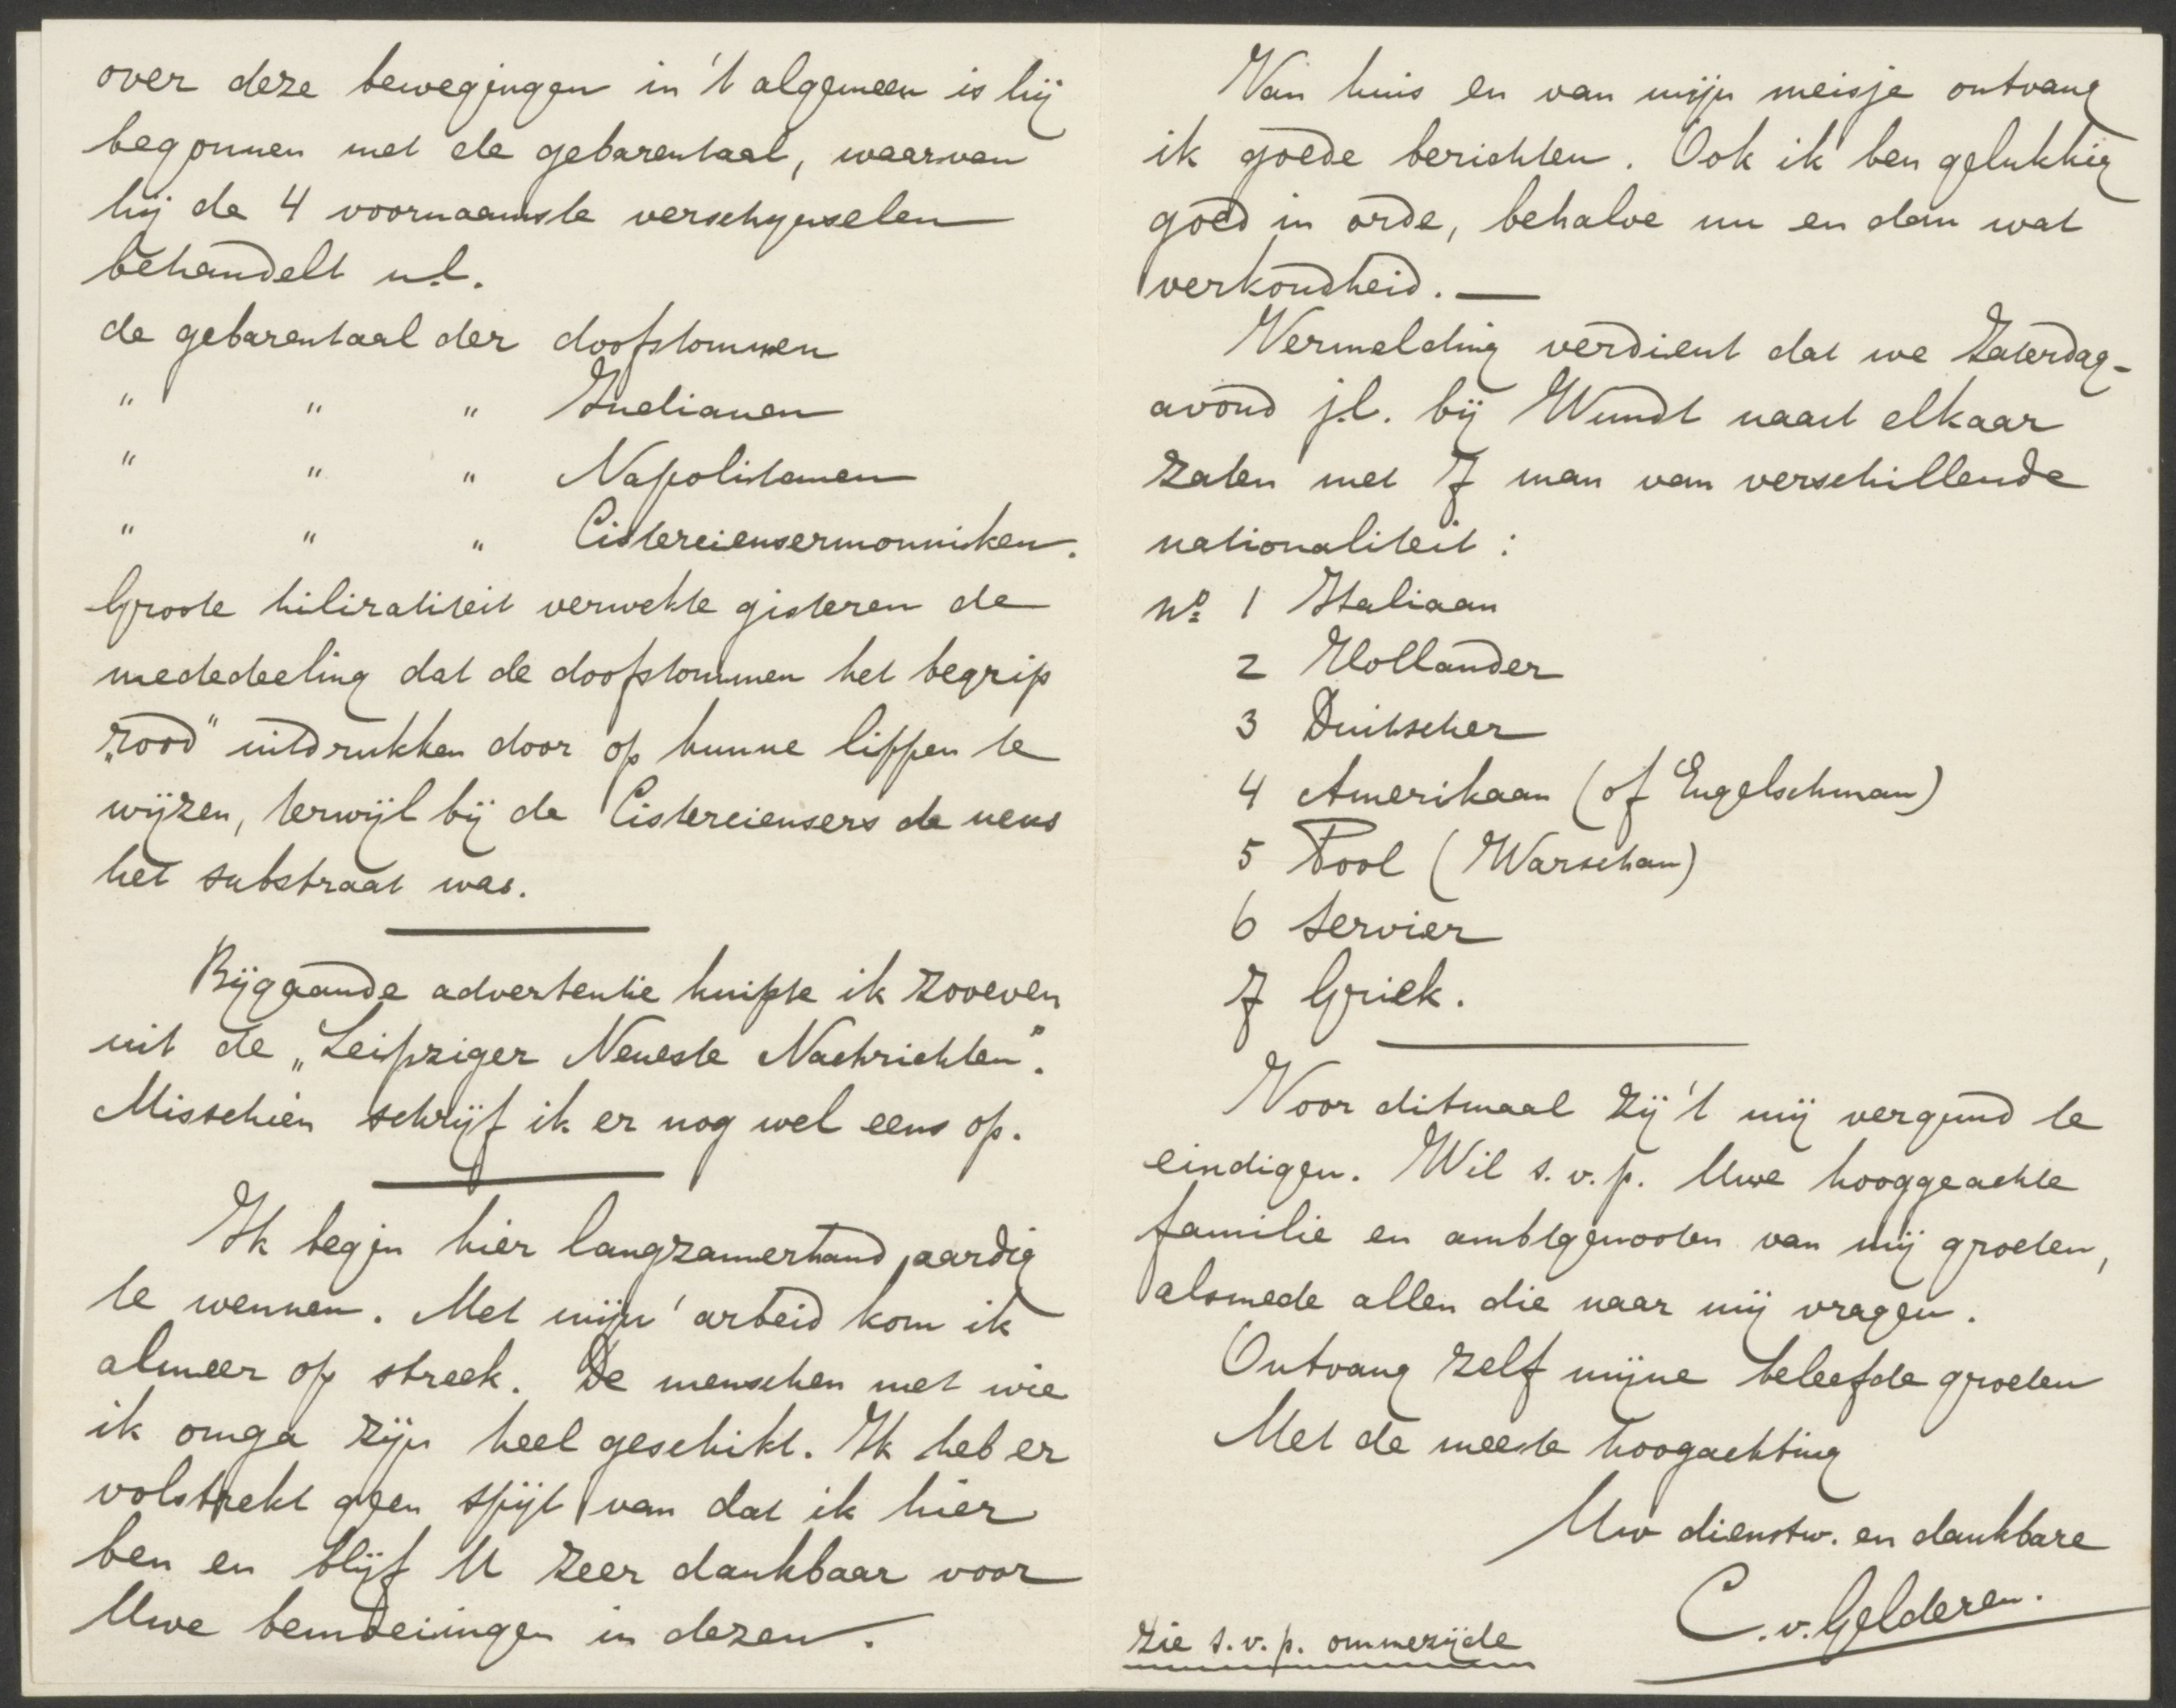 over deze bewegingen in 't algemeen is hij
begonnen met de gebarentaal, waarvan
hij de 4 voornaamste verschynselen
behandelt n.l.
de gebarentaal der doofstommen
" " " Indianen
" " " Napolitanen
" " " Cisterciensermonniken.
Groote hiliratiteit verwekte gisteren de
mededeeling dat de doofstommen het begrip
„rood" uitdrukken door op hunne lippen te
wijzen, terwijl bij de Cisterciensers de neus
het substraat was.
Bijgaande advertentie knipte ik zooeven
uit de „Leipziger Neueste Nachrichten".
Misschien schrijf ik er nog wel eens op.
Ik begin hier langzamerhand aardig
te wennen. Met mijn' arbeid kom ik
almeer op streek. De menschen met wie
ik omga zijn heel geschikt. Ik heb er
volstrekt geen spijt van dat ik hier
ben en blijf U zeer dankbaar voor
Uwe bemoeiingen in dezen.
Van huis en van mijn meisje ontvang
ik goede berichten. Ook ik ben gelukkig
goed in orde, behalve nu en dan wat
verkoudheid. —
Vermelding verdient dat we Zaterdag-
avond j.l. bij Wundt naast elkaar
zaten met 7 man van verschillende
nationaliteit:
No. 1 Italiaan
2 Hollander
3 Duitscher
4 Amerikaan (of Engelschman)
5 Pool (Warschau)
6 Servier
7 Griek.
Voor ditmaal zij 't mij vergund te
eindigen. Wil s.v.p. Uwe hooggeachte
familie en ambtgenooten van mij groeten,
alsmede allen die naar mij vragen.
Ontvang zelf mijne beleefde groeten
Met de meeste hoogachting
Uw dienstw. en dankbare
C. v. Gelderen.
zie s.v.p. ommezijde